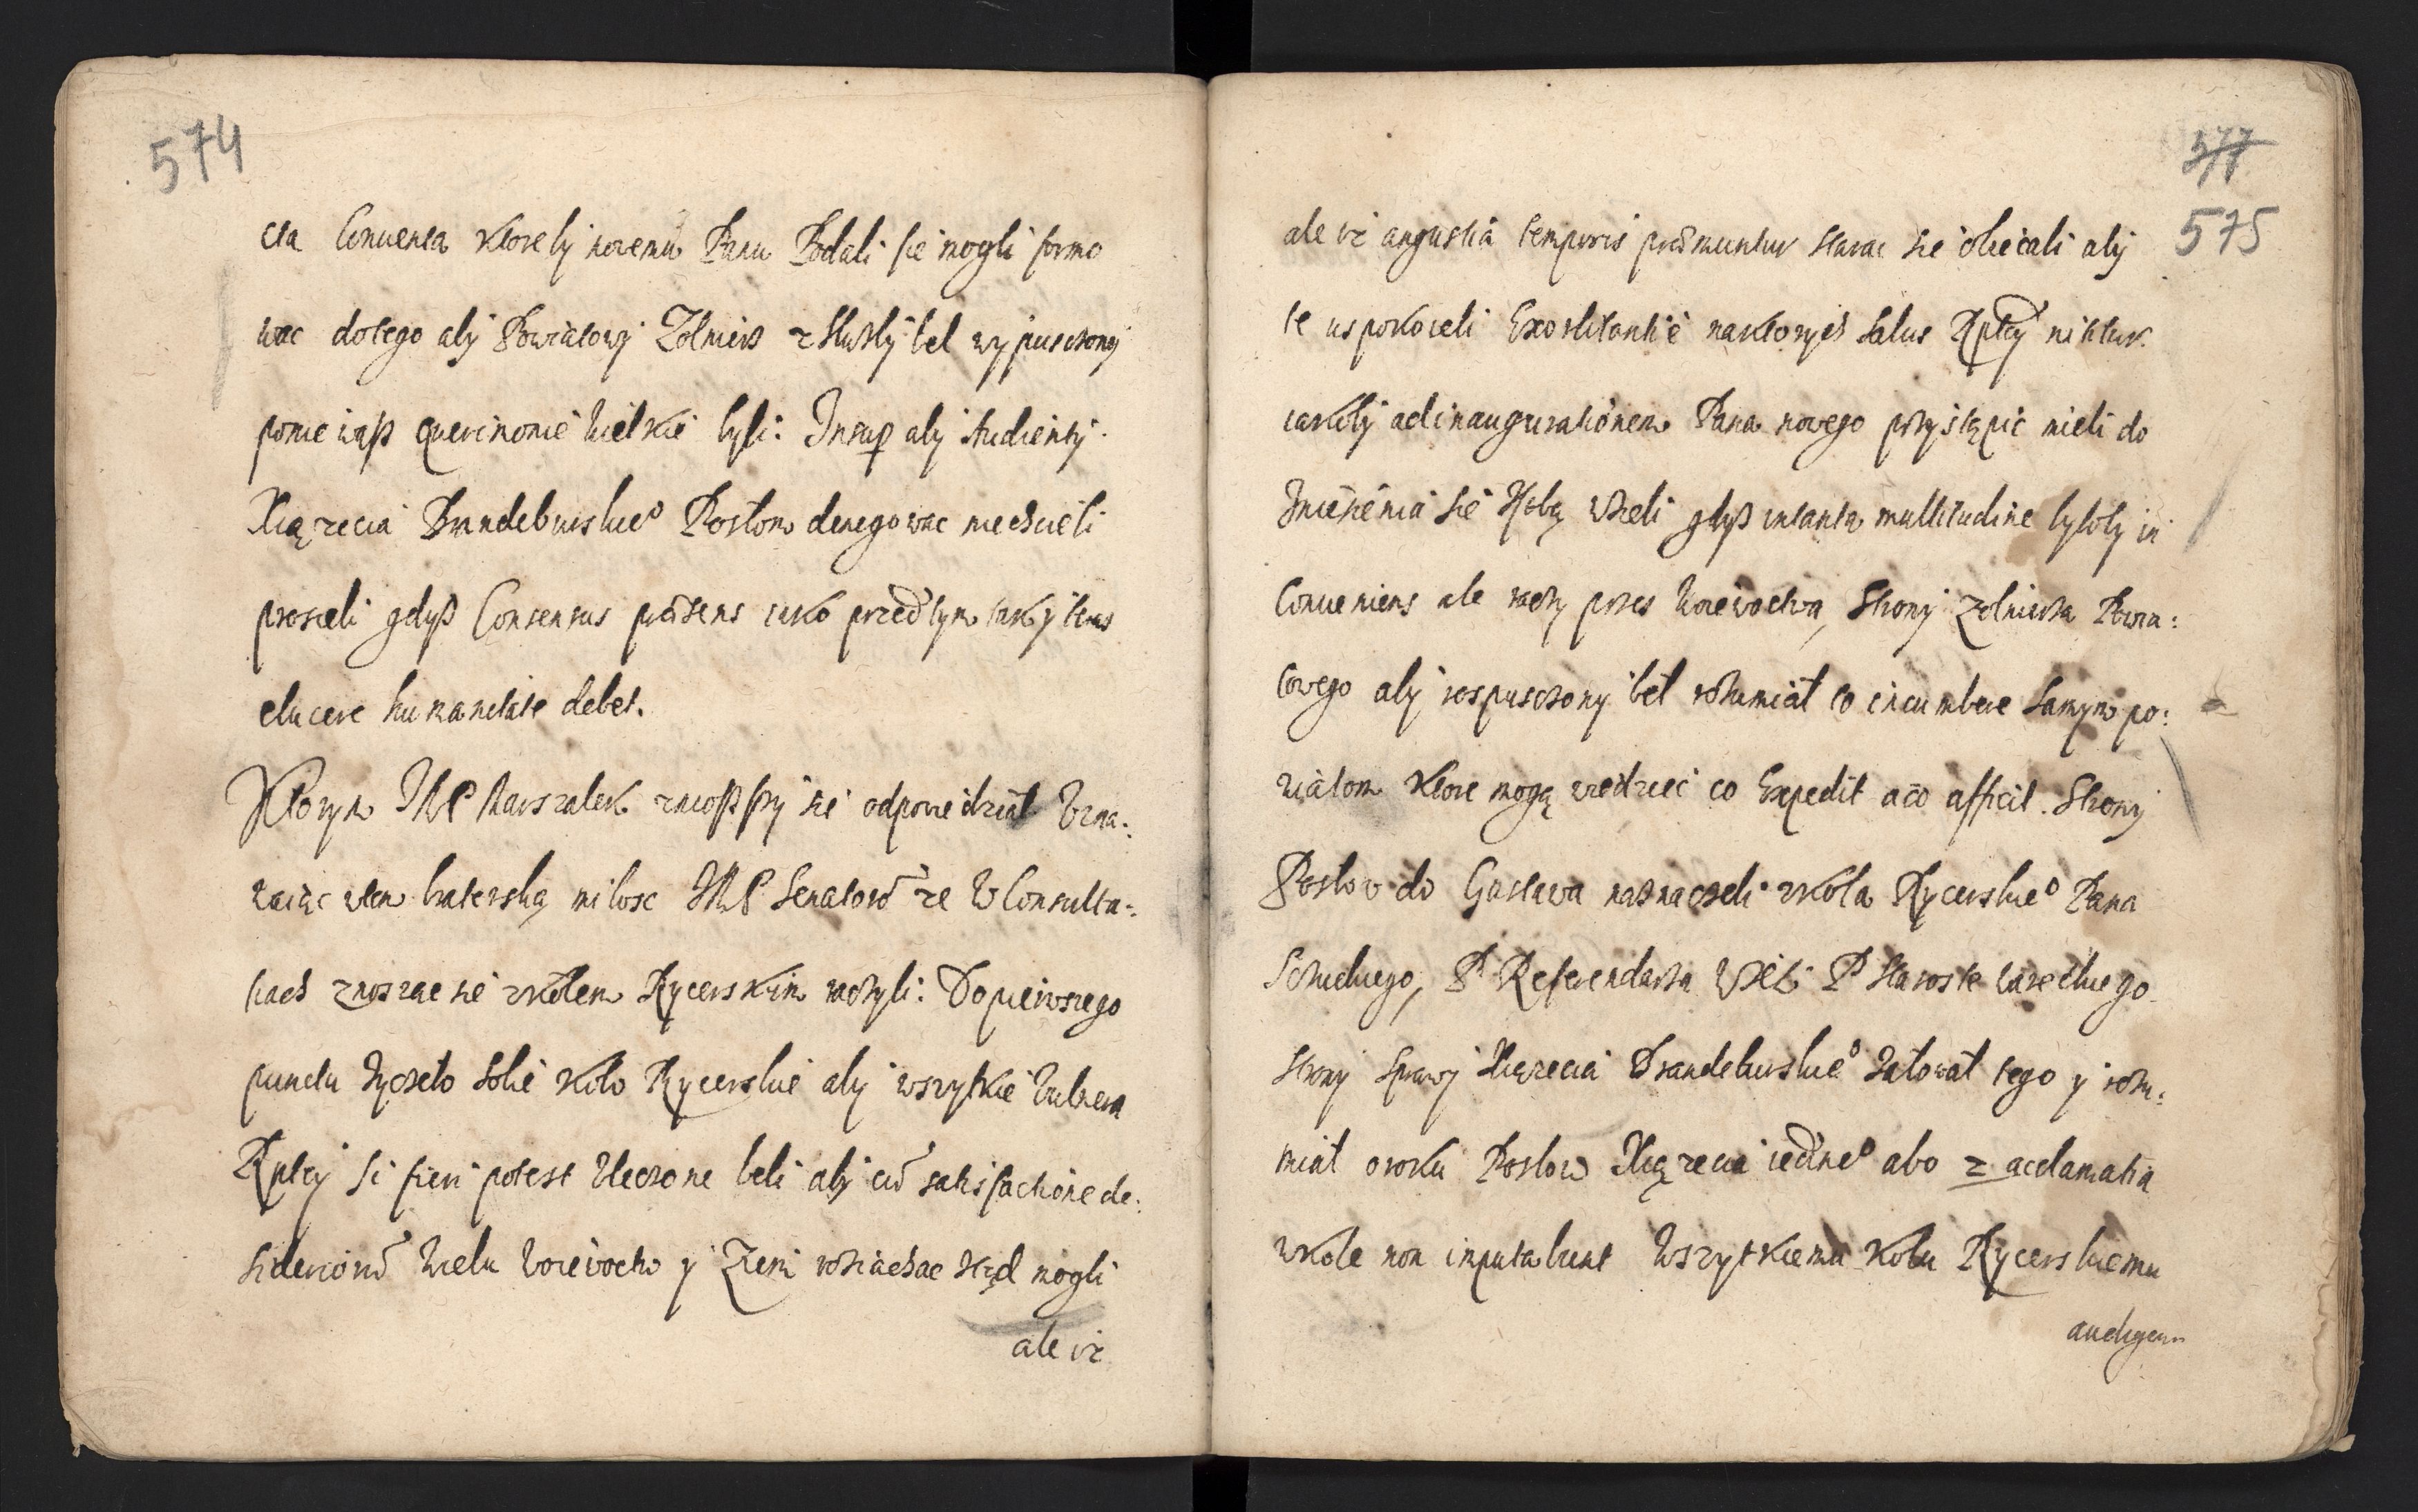 574
cta Conuenta ktoreby nowemu Panu Podali sie mogli formo
wac dotego aby Powiatowy Zolnierz z sluzby bel wypusczony
poniewasz querimonie wielkie byli: Insup aby Audienty
Xiązecia Brandeburskieo Posłom denegowac niechcieli
prosieli gdysz Consensus præsens iako przedtym tak y teras
elucere humanitate debet.
Ktorym IMP Marszalek zniosszy sie odpowiedział Uzna:
waiąc wten braterską milosc IMP Senatorow ze W Consulta:
tiach znoszac sie zkołem Rycerskim raczyli: Do pierwszego
punctu zyczeło sobie koło Rycerskie aby wszytkie Vulnera
Rptcy si fieri potest Uleczone beli aby cu satisfactione de:
sideriorū wielu woiewoctw y Ziem roziachac stąd mogli
ale iz
377
575
ale iz angustiâ temporis præmuntur starac sie obiecali aby
te uspokoieli Exorbitantie naktorych salus Rptcy nititur
iakoby ad inaugurationem Pana nowego przystąpic mieli do
zniesienia sie z sobą wzieli gdysz intanta multitudine byłoby in
Conueniens ale raczy przes woiewoctwa, Strony zolnierza Powia:
towego aby rospusczony beł rozumiał to incumbere samym po:
wiatom ktore mogą wiedziec co Expedit aco afficit. Strony
Posłow do Gustawa naznaczeli zkoła Rycerskieo Pana
Sobieskiego, P Referendarza WXL P Staroste wareckiego
strony sprawy Xiązecia Brandeburskieo załował tego y rozu:
miał oroku Posłow Xiązecia iedneo abo z acclamatia
wkole non imputabunt wszytkiemu kołu Rycerskiemu